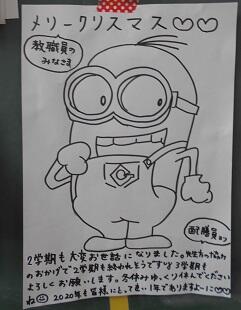 メリークリスマス♡♡
教職員の
みなさま
配膳員より
2学期も大変お世話になりました。先生方の協力
のおかげで2学期も終われそうです!!3学期も
よろしくお願いします。冬休みゆっくり休んでください
ね☺ 2020年も皆様にとって良い1年でありますよーに♡♡